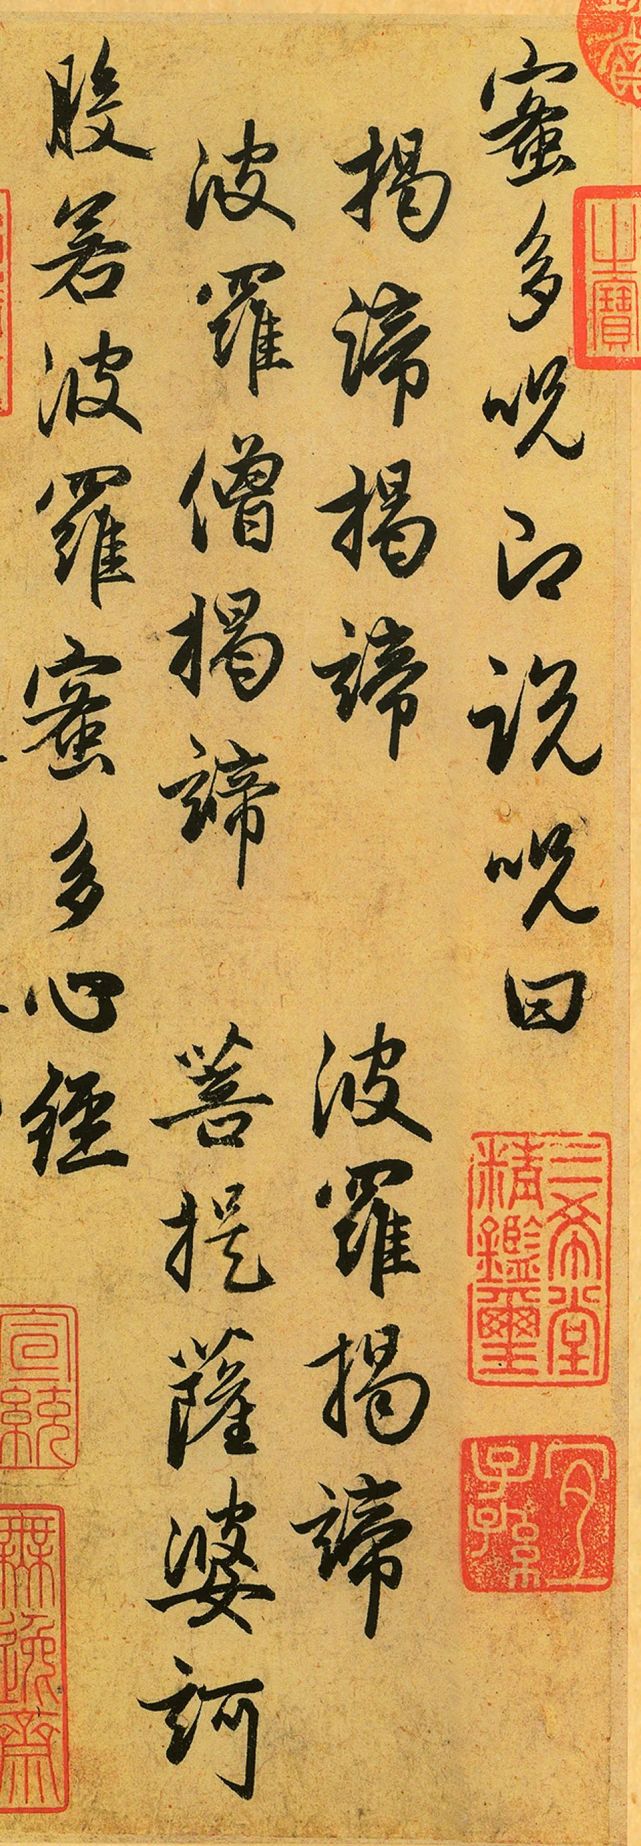 蜜多呪即説呪曰
揭諦揭諦 波羅揭諦
波羅僧揭諦 菩提薩婆訶
般若波羅蜜多心經
之寶
三希堂精鑑璽
宜子孫
宣統
無逸齋